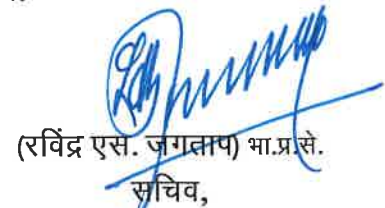 (रविंद्र एस. जगताप) भा.प्र.से.
सचिव,